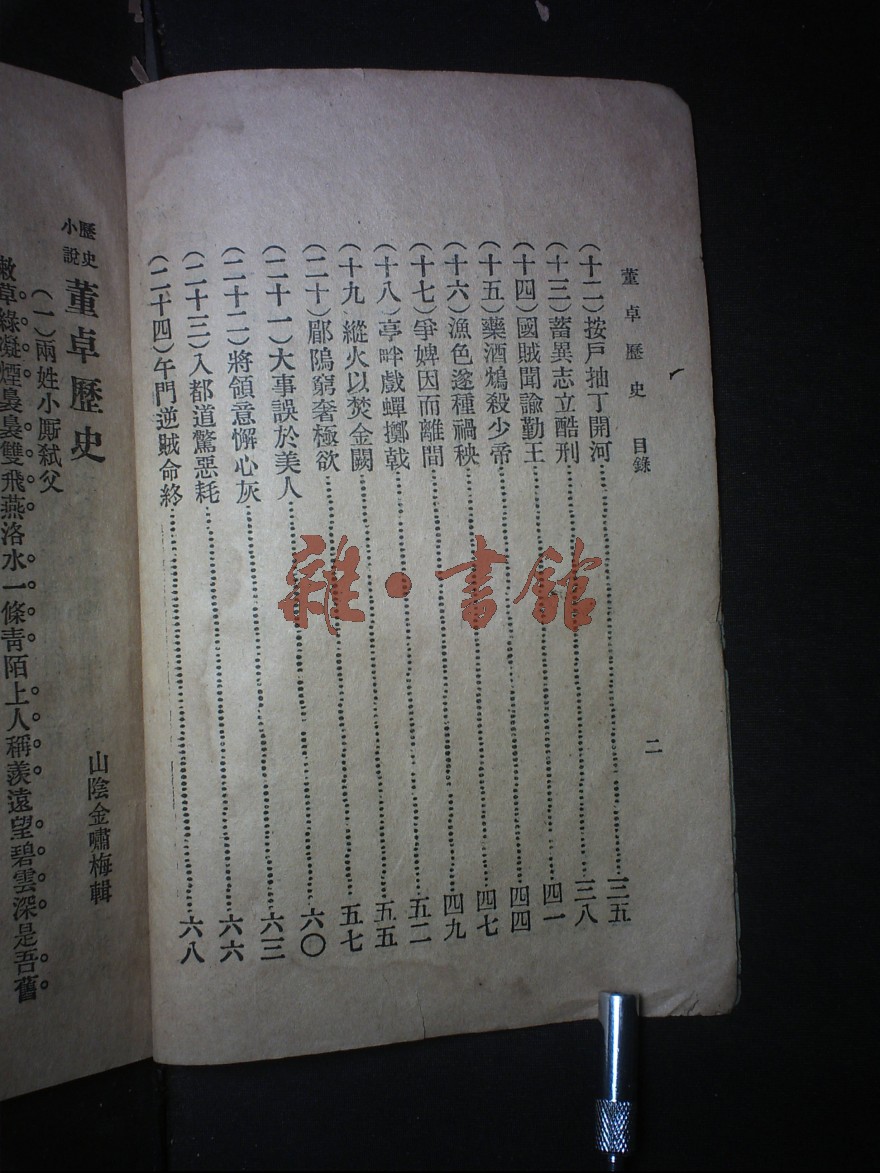 董卓歷史 目錄 二
(十二)按戶抽丁開河 三五
(十三)蓄異志立酷刑 三八
(十四)國賊聞諭勤王 四一
(十五)藥酒鴆殺少帝 四四
(十六)漁色遂種禍秧 四七
(十七)爭婢因而離間 四九
(十八)亭畔戲蟬擲戟 五二
(十九 縱火以焚金闕 五五
(二十)郿隖窮奢極欲 五七
(二十一)大事誤於美人 六〇
(二十二)將領意懈心灰 六三
(二十三)入都道驚惡耗 六六
(二十四)午門逆賊命終 六八
歷史小說 董卓歷史
山陰金嘯梅輯
(一)兩姓小厮弑父
草綠凝煙裊裊雙飛燕洛水一條青陌上人稱羨遠望碧雲深是吾舊
雜·書館